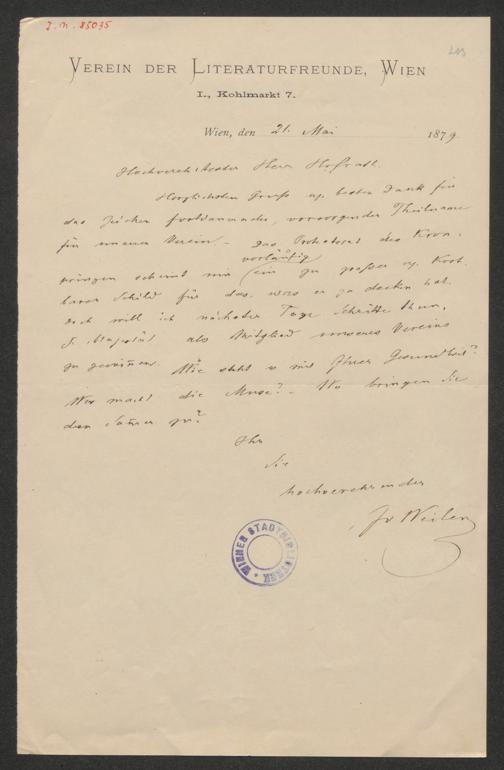 J. N. 85035
213
VEREIN DER LITERATURFREUNDE, WIEN
I., Kohlmarkt 7.
Wien, den 21. Mai 1879
Hochverehrtester Herr Hofrath.
Herzlichsten Gruß u. besten Dank für
das Zeichen fortdauernder, vorsorgender Theilname
für unseren Verein. – Das Protektorat des Kron-
prinzen scheint mir vorläufig ein zu großer u. kost-
barer Schild für das, was er zu decken hat.
doch will ich nächster Tage Schritte thun,
S. Majestät als Mitglied unseres Vereins
zu gewinnen. Wie steht es mit Ihrer Gesundheit?
Was macht die Muse? – Wo bringen Sie
den Sommer zu?
Ihr
Sie
hochverehrender
Jv Weilen
WIENER STADTBIBLIOTHEK